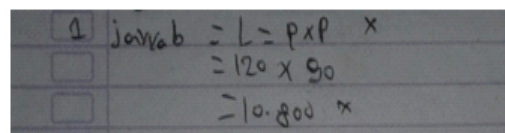 1 jawab = L = P x P x
= 120 x 90
= 10.800 x